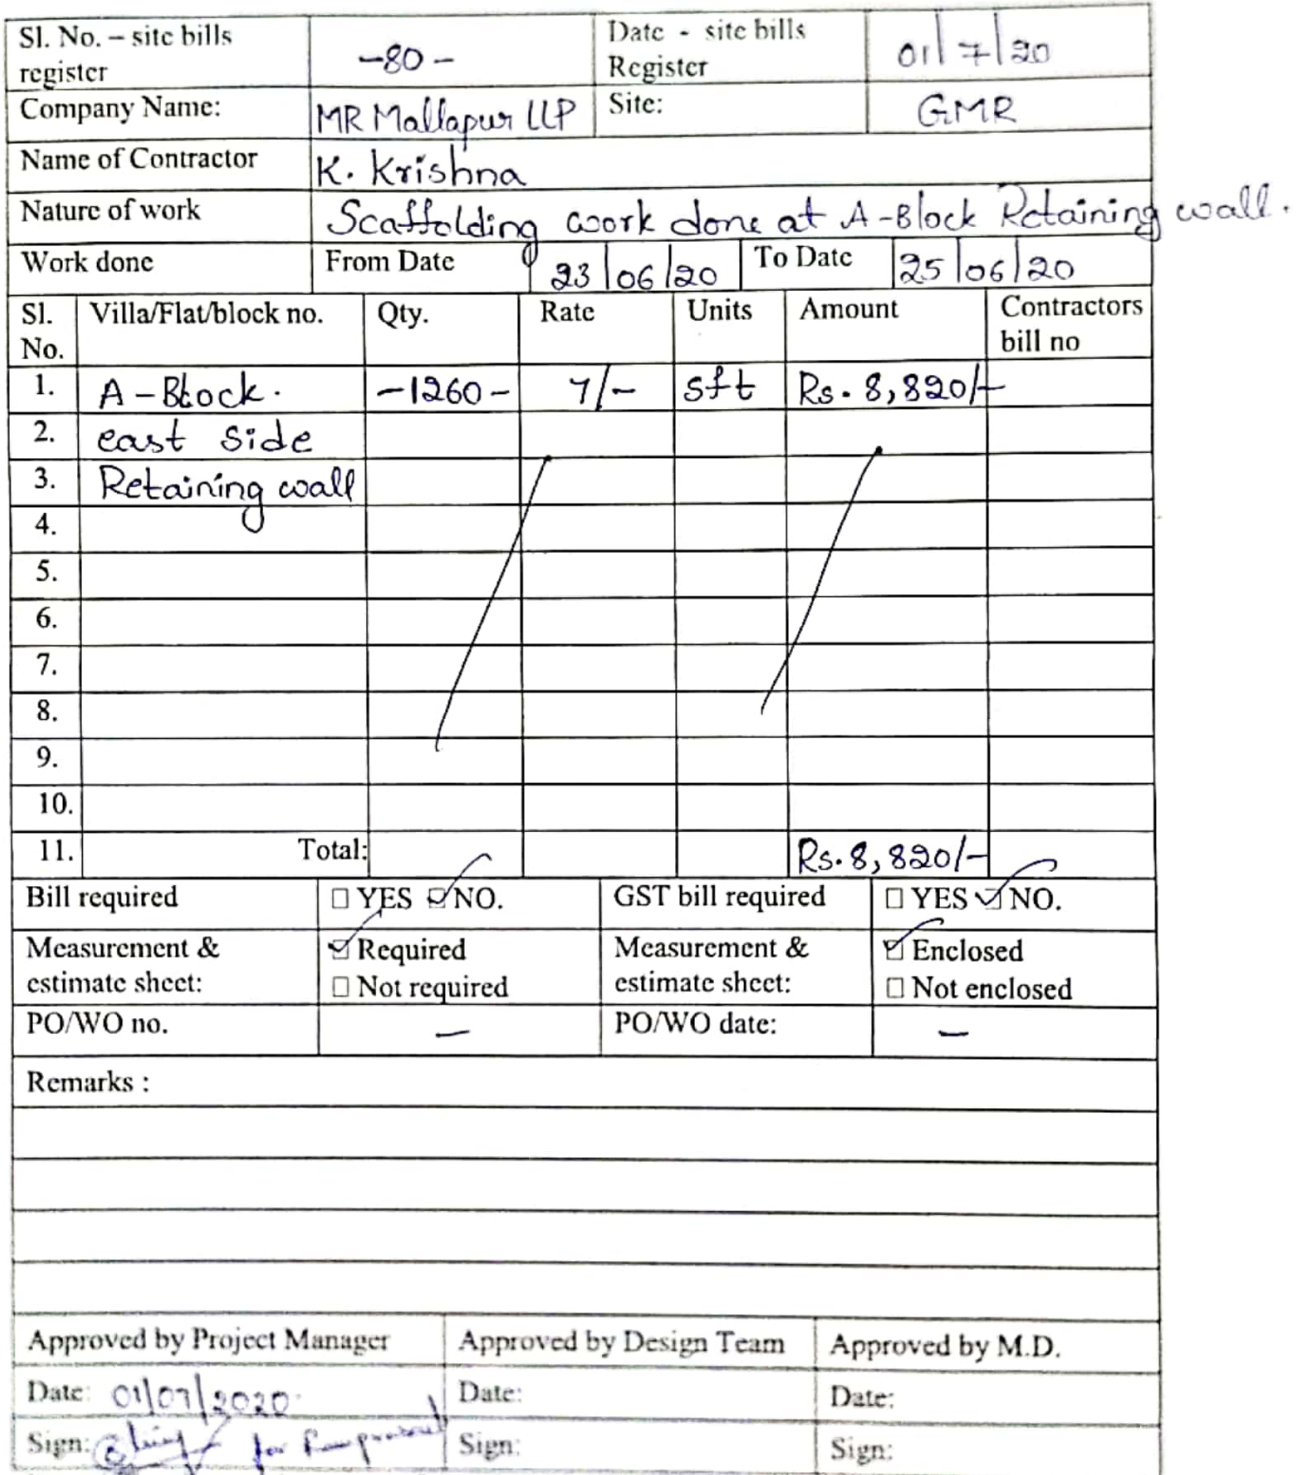 Sl. No. – site bills register -80- Date - site bills Register 01/7/20
Company Name: MR Mallapur LLP Site: GMR
Name of Contractor K. Krishna
Nature of work Scaffolding work done at A-Block Retaining wall.
Work done From Date 23/06/20 To Date 25/06/20
Sl. No. Villa/Flat/block no. Qty. Rate Units Amount Contractors bill no
1. A-Block. -1260- 7/- sft Rs. 8,820/-
2. east side
3. Retaining wall
4.
5.
6.
7.
8.
9.
10.
11. Total: Rs. 8,820/-
Bill required □ YES ☑ NO. GST bill required □ YES ☑ NO.
Measurement & estimate sheet: ☑ Required □ Not required Measurement & estimate sheet: ☑ Enclosed □ Not enclosed
PO/WO no. – PO/WO date: –
Remarks :
Approved by Project Manager Approved by Design Team Approved by M.D.
Date: 01/07/2020 Date: Date:
Sign: for Sign: Sign: